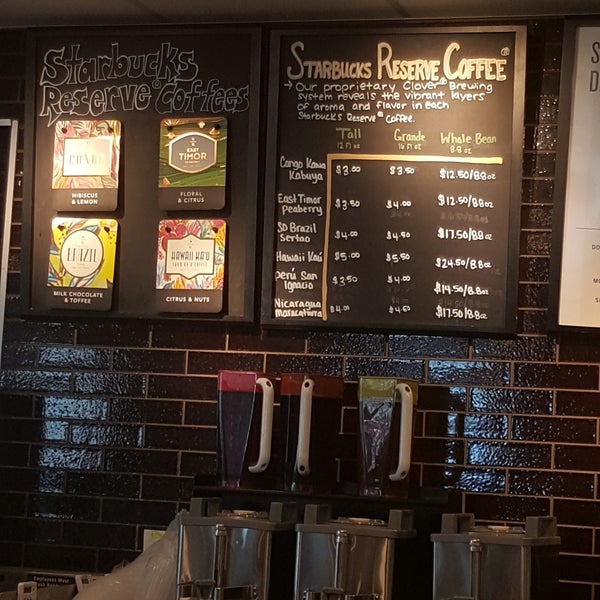 Starbucks
Reserve® Coffees
CONGO
HIBISCUS
& LEMON
EAST
TIMOR
FLORAL
& CITRUS
BRAZIL
MILK CHOCOLATE
& TOFFEE
HAWAII KA'U
CITRUS & NUTS
STARBUCKS RESERVE® COFFEE®
→ Our proprietary Clover® Brewing
system reveals the vibrant layers
of aroma and flavor in each
Starbucks Reserve® Coffee.
Tall Grande Whole Bean
12 fl oz 16 fl oz 8.8 oz
Congo Kawa
Kabuya $3.00 $3.50 $12.50/8.8oz
East Timor
Peaberry $3.50 $4.00 $12.50/8.8oz
SD Brazil
Sertao $4.00 $4.50 $17.50/8.8oz
Hawaii Kaú $5.00 $5.50 $24.50/8.8oz
Perú San
Ignacio $3.50 $4.00 $14.50/8.8oz
Nicaragua
Maracaturra $4.00 $4.50 $17.50/8.8oz
S
D
DO
MO
Employees Must